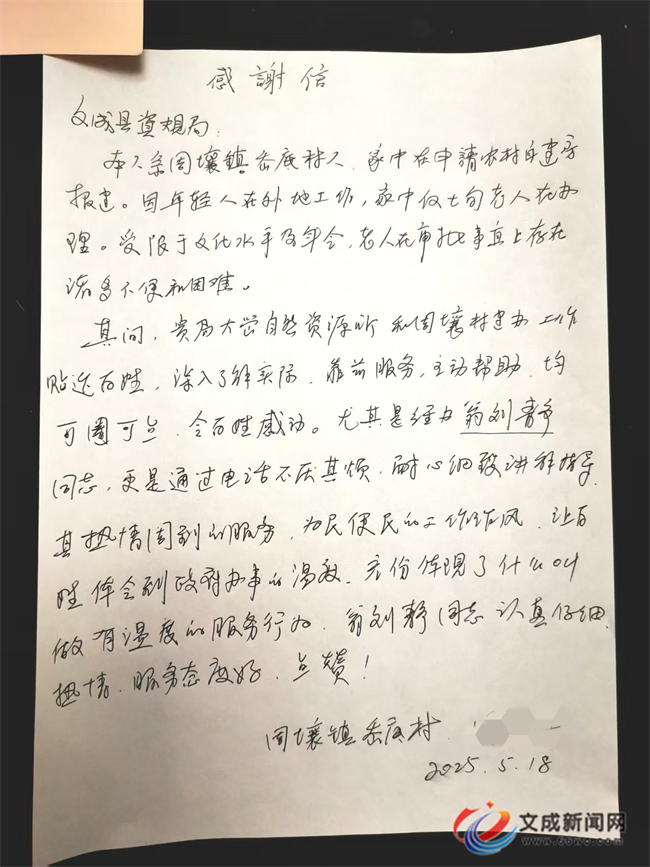 感謝信
文成县资规局:
本人系周壤镇岙底村人,家中在申請农村自建房
报建。因年轻人在外地工作,家中仅七旬老人在办
理。受限于文化水平及年令,老人在审批事宜上存在
诸多不便和困难。
其间,贵局大峃自然资源所和周壤村建办工作
贴近百姓,深入了解实际,靠前服务,主动帮助,均
可圈可点,令百姓感动。尤其是经办翁刘静
同志,更是通过电话不厌其烦,耐心细致讲释指导,
其热情周到的服务,为民便民的工作作风,让百
姓体会到政府办事的温度,充份体現了什么叫
做有温度的服务行为,翁刘静同志认真仔细,
热情、服务态度好,点赞!
周壤镇岙底村
2025.5.18
文成新闻网
www.66wc.com